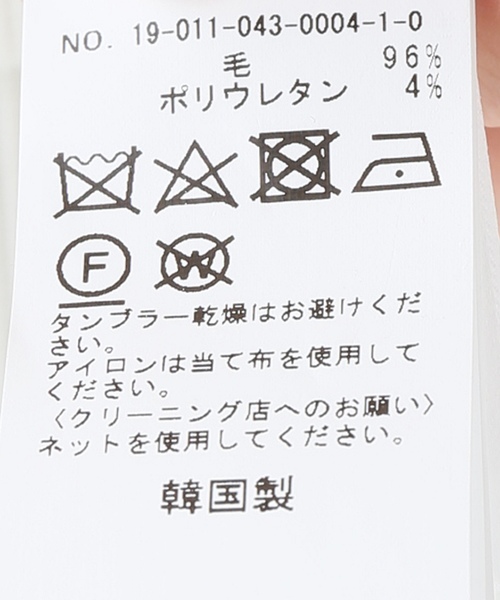 NO. 19-011-043-0004-1-0
毛 96%
ポリウレタン 4%
F W
タンブラー乾燥はお避けくだ
さい。
アイロンは当て布を使用して
ください。
〈クリーニング店へのお願い〉
ネットを使用してください。
韓国製